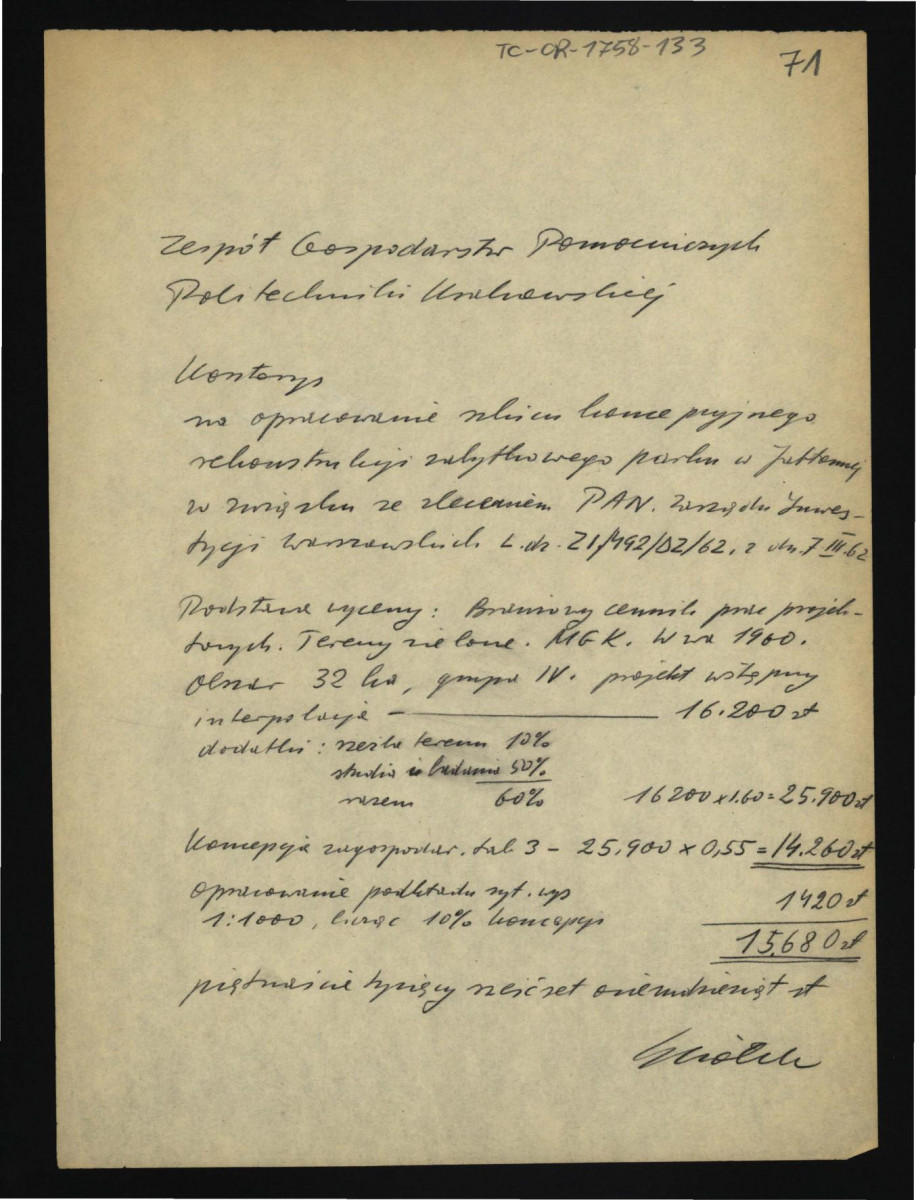 TC-OR-1758-133
71
Zespół Gospodarstw Pomocniczych
Politechniki Krakowskiej
Kosztorys
na opracowanie szkicu koncepcyjnego
rekonstrukcji zabytkowego parku w Jabłonnej
w związku ze zleceniem PAN. Zarządu Inwes-
tycji Warszawskich L.dz. ZI/492/DZ/62, z dn. 7 III.62
Podstawa wyceny: Branżowy cennik prac projek-
towych. Tereny zielone. MGK. W-wa 1960.
Obszar 32 ha, grupa IV. projekt wstępny
interpolacja — 16.200 zł
dodatki: rzeźba terenu 10%
studia i badania 50%
razem 60% 16200 x 1.60 = 25.900 zł
Koncepcja zagospodar. tab 3 – 25.900 x 0,55 = 14.260 zł
Opracowanie podkładu syt. wys
1:1000, licząc 10% koncepcji 1420 zł
15.680 zł
piętnaście tysięcy sześćset osiemdziesiąt zł